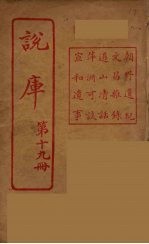 朝野遺紀
文昌雜錄
道山清話
萍洲可談
宣和遺事
說庫
第十九冊